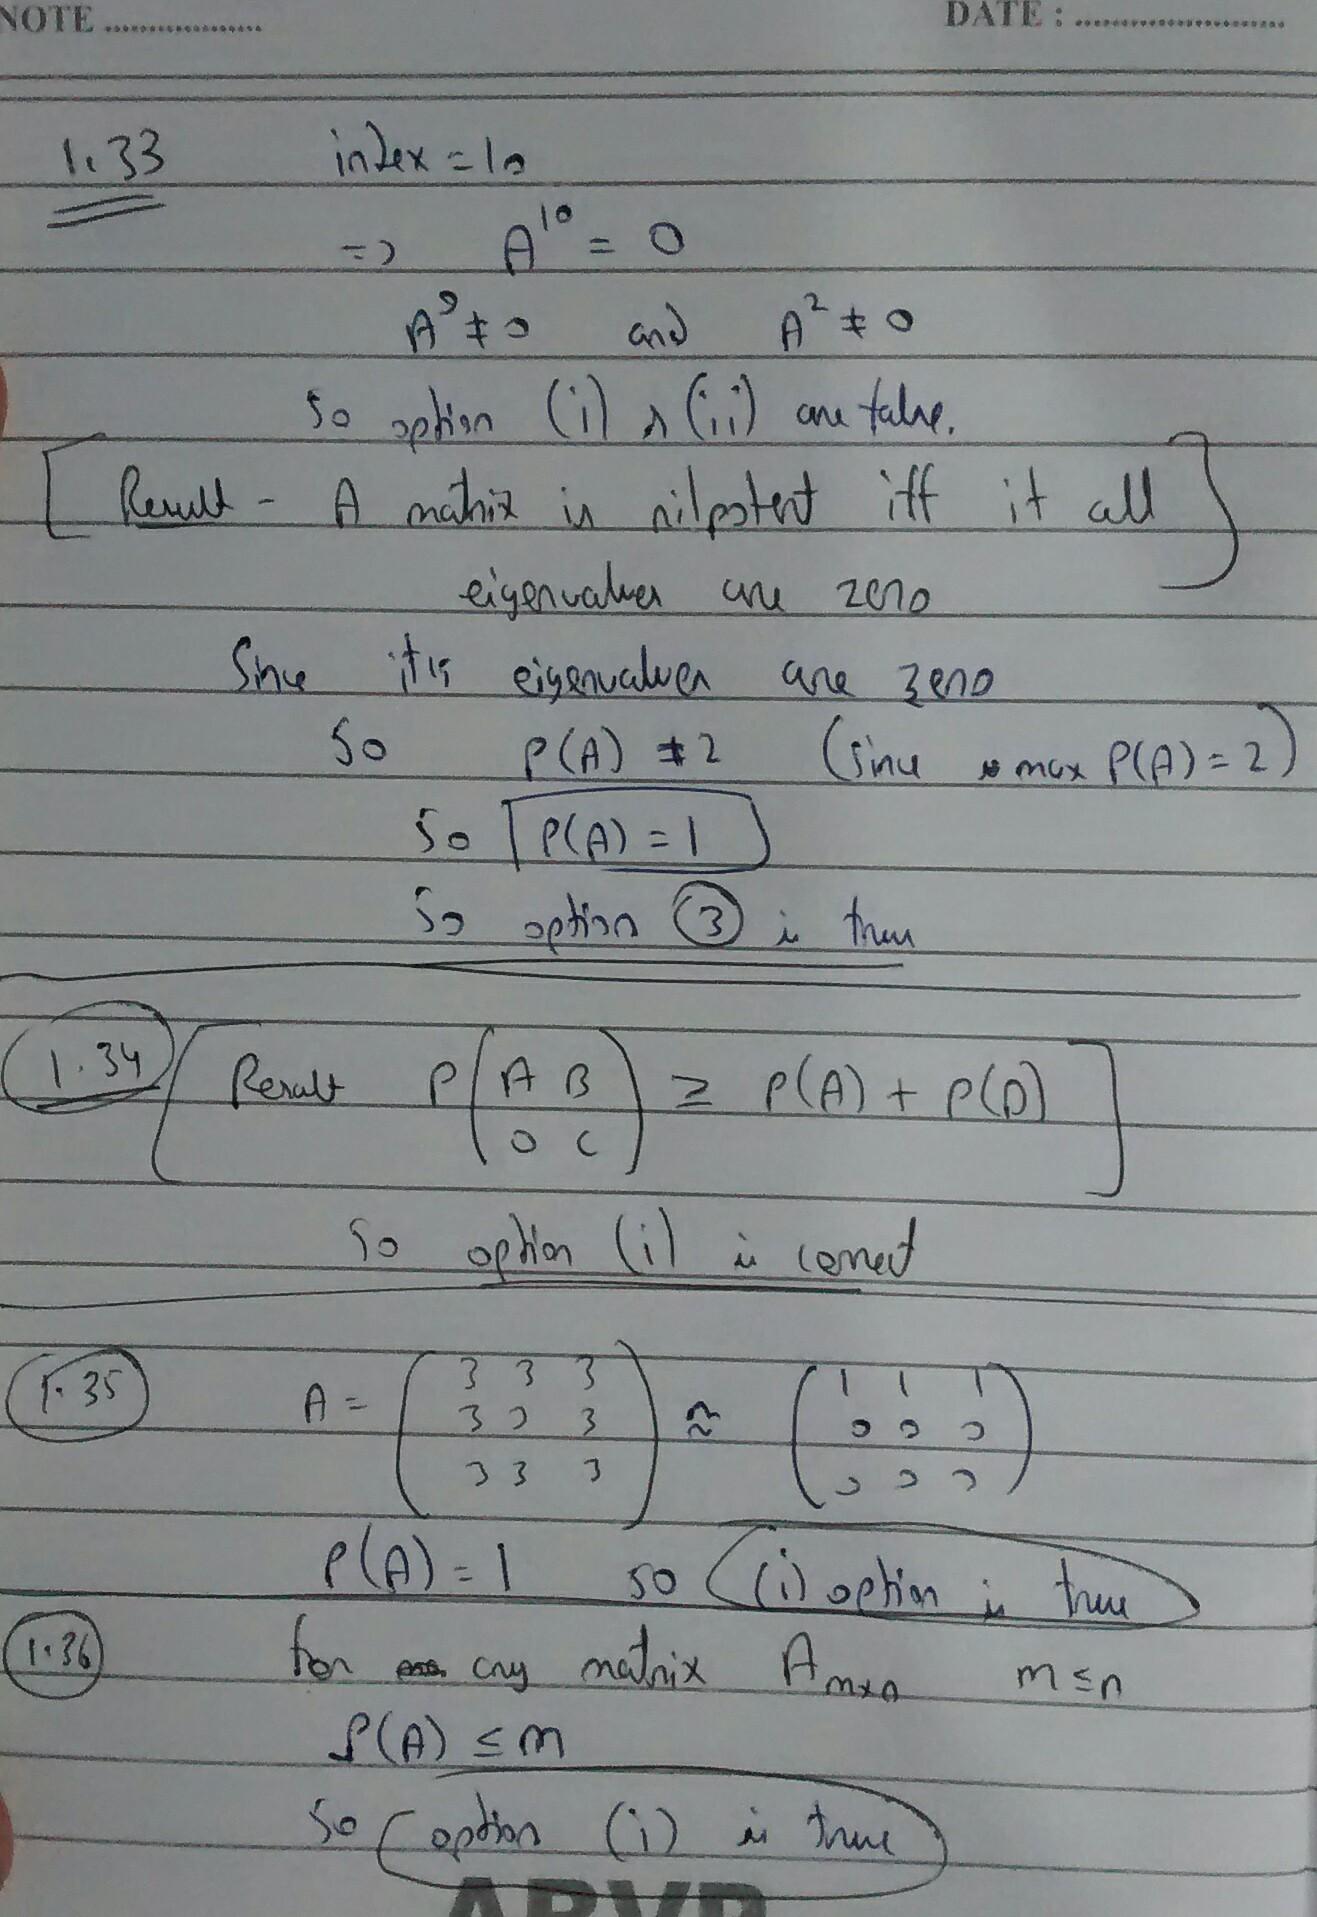 NOTE ..................
DATE : ........................
1.33 index = 10
=> A^10 = 0
A^9 ≠ 0 and A^2 ≠ 0
So option (i) & (ii) are false.
[Result - A matrix is nilpotent iff it all
eigenvalues are zero]
Since it's eigenvalues are zero
So ρ(A) ≠ 2 (Since max ρ(A) = 2)
So ρ(A) = 1
So option 3 is true
1.34 [Result ρ(A B
0 C) ≥ ρ(A) + ρ(D)]
So option (i) is correct
1.35 A = (3 3 3
3 3 3
3 3 3) ≈ (1 1 1
0 0 0
0 0 0)
ρ(A) = 1 so (i) option is true
1.36 for any matrix A m×n m ≤ n
ρ(A) ≤ m
So option (i) is true